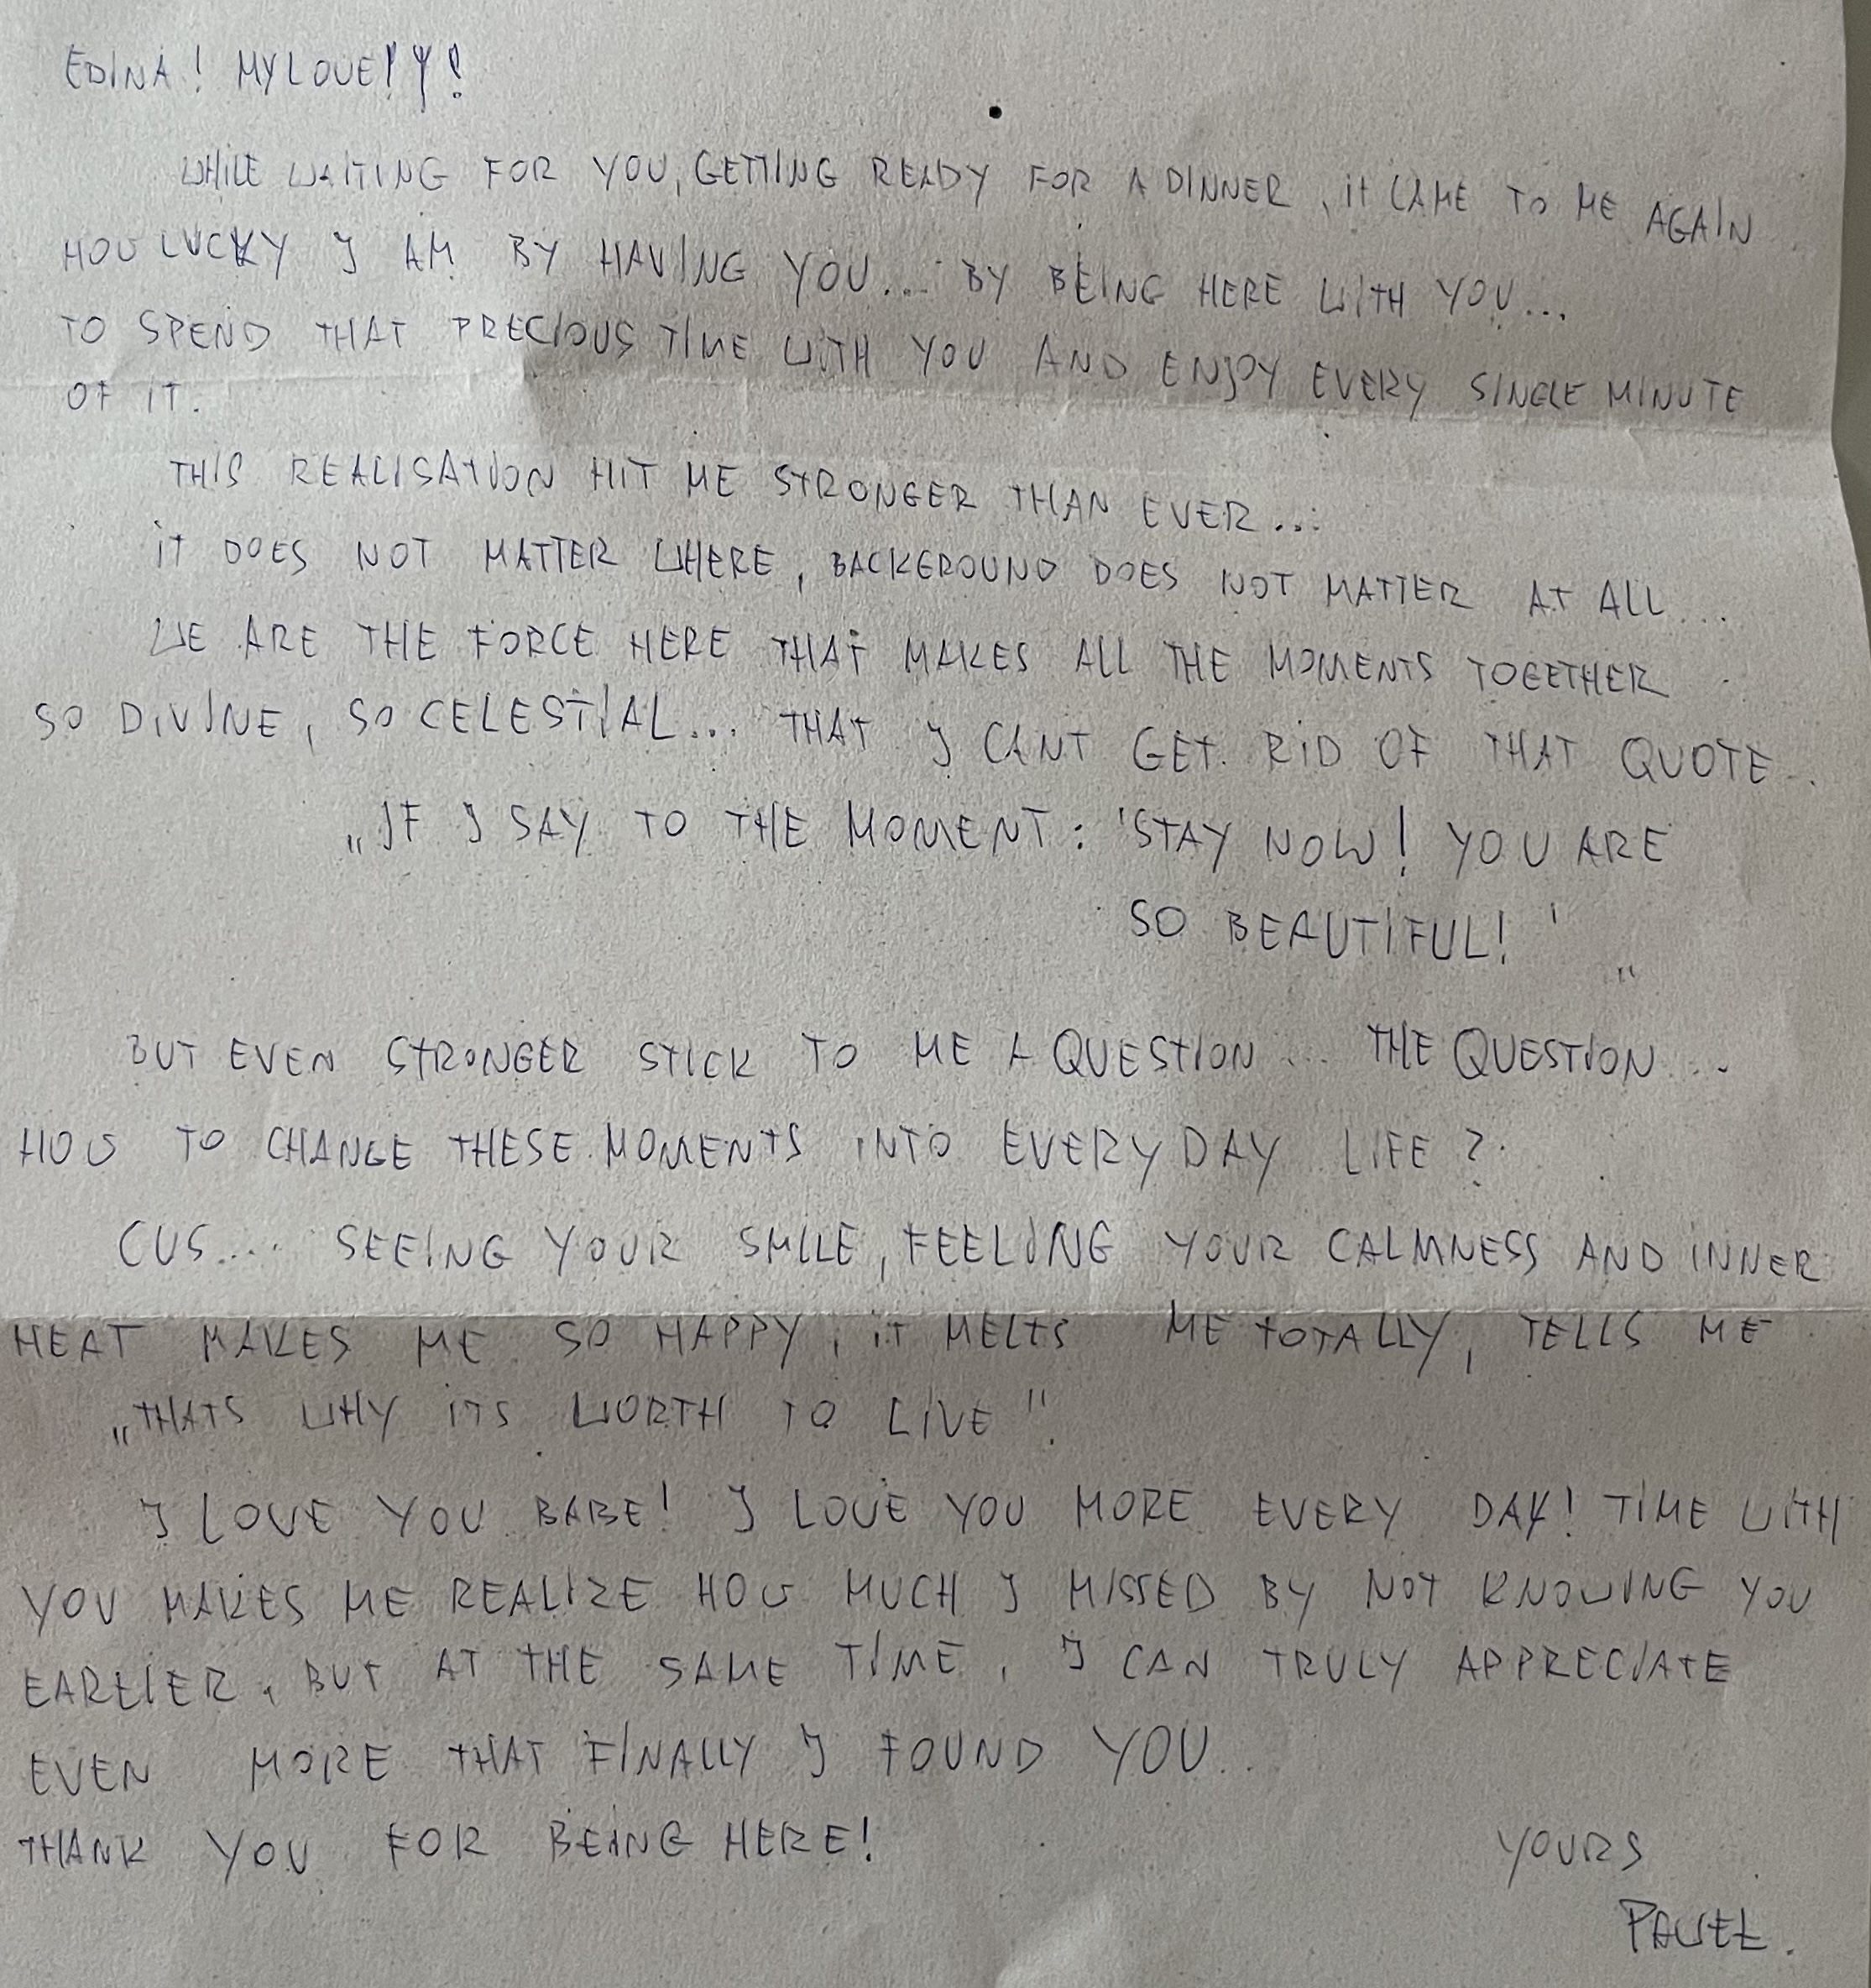 EDINA! MY LOVE!!!
WHILE WAITING FOR YOU, GETTING READY FOR A DINNER, IT CAME TO ME AGAIN
HOW LUCKY I AM BY HAVING YOU... BY BEING HERE WITH YOU...
TO SPEND THAT PRECIOUS TIME WITH YOU AND ENJOY EVERY SINGLE MINUTE
OF IT.
THIS REALISATION HIT ME STRONGER THAN EVER...
IT DOES NOT MATTER WHERE, BACKGROUND DOES NOT MATTER AT ALL...
WE ARE THE FORCE HERE THAT MAKES ALL THE MOMENTS TOGETHER
SO DIVINE, SO CELESTIAL... THAT I CANT GET RID OF THAT QUOTE..
„IF I SAY TO THE MOMENT: 'STAY NOW! YOU ARE
SO BEAUTIFUL!' „
BUT EVEN STRONGER STICK TO ME A QUESTION... THE QUESTION...
HOW TO CHANGE THESE MOMENTS INTO EVERYDAY LIFE?
CUS.... SEEING YOUR SMILE, FEELING YOUR CALMNESS AND INNER
HEAT MAKES ME SO HAPPY, IT MELTS ME TOTALLY, TELLS ME
„THATS WHY ITS WORTH TO LIVE".
I LOVE YOU BABE! I LOVE YOU MORE EVERY DAY! TIME WITH
YOU MAKES ME REALIZE HOW MUCH I MISSED BY NOT KNOWING YOU
EARLIER, BUT AT THE SAME TIME, I CAN TRULY APPRECIATE
EVEN MORE THAT FINALLY I FOUND YOU..
THANK YOU FOR BEING HERE!
YOURS
PAWEŁ.